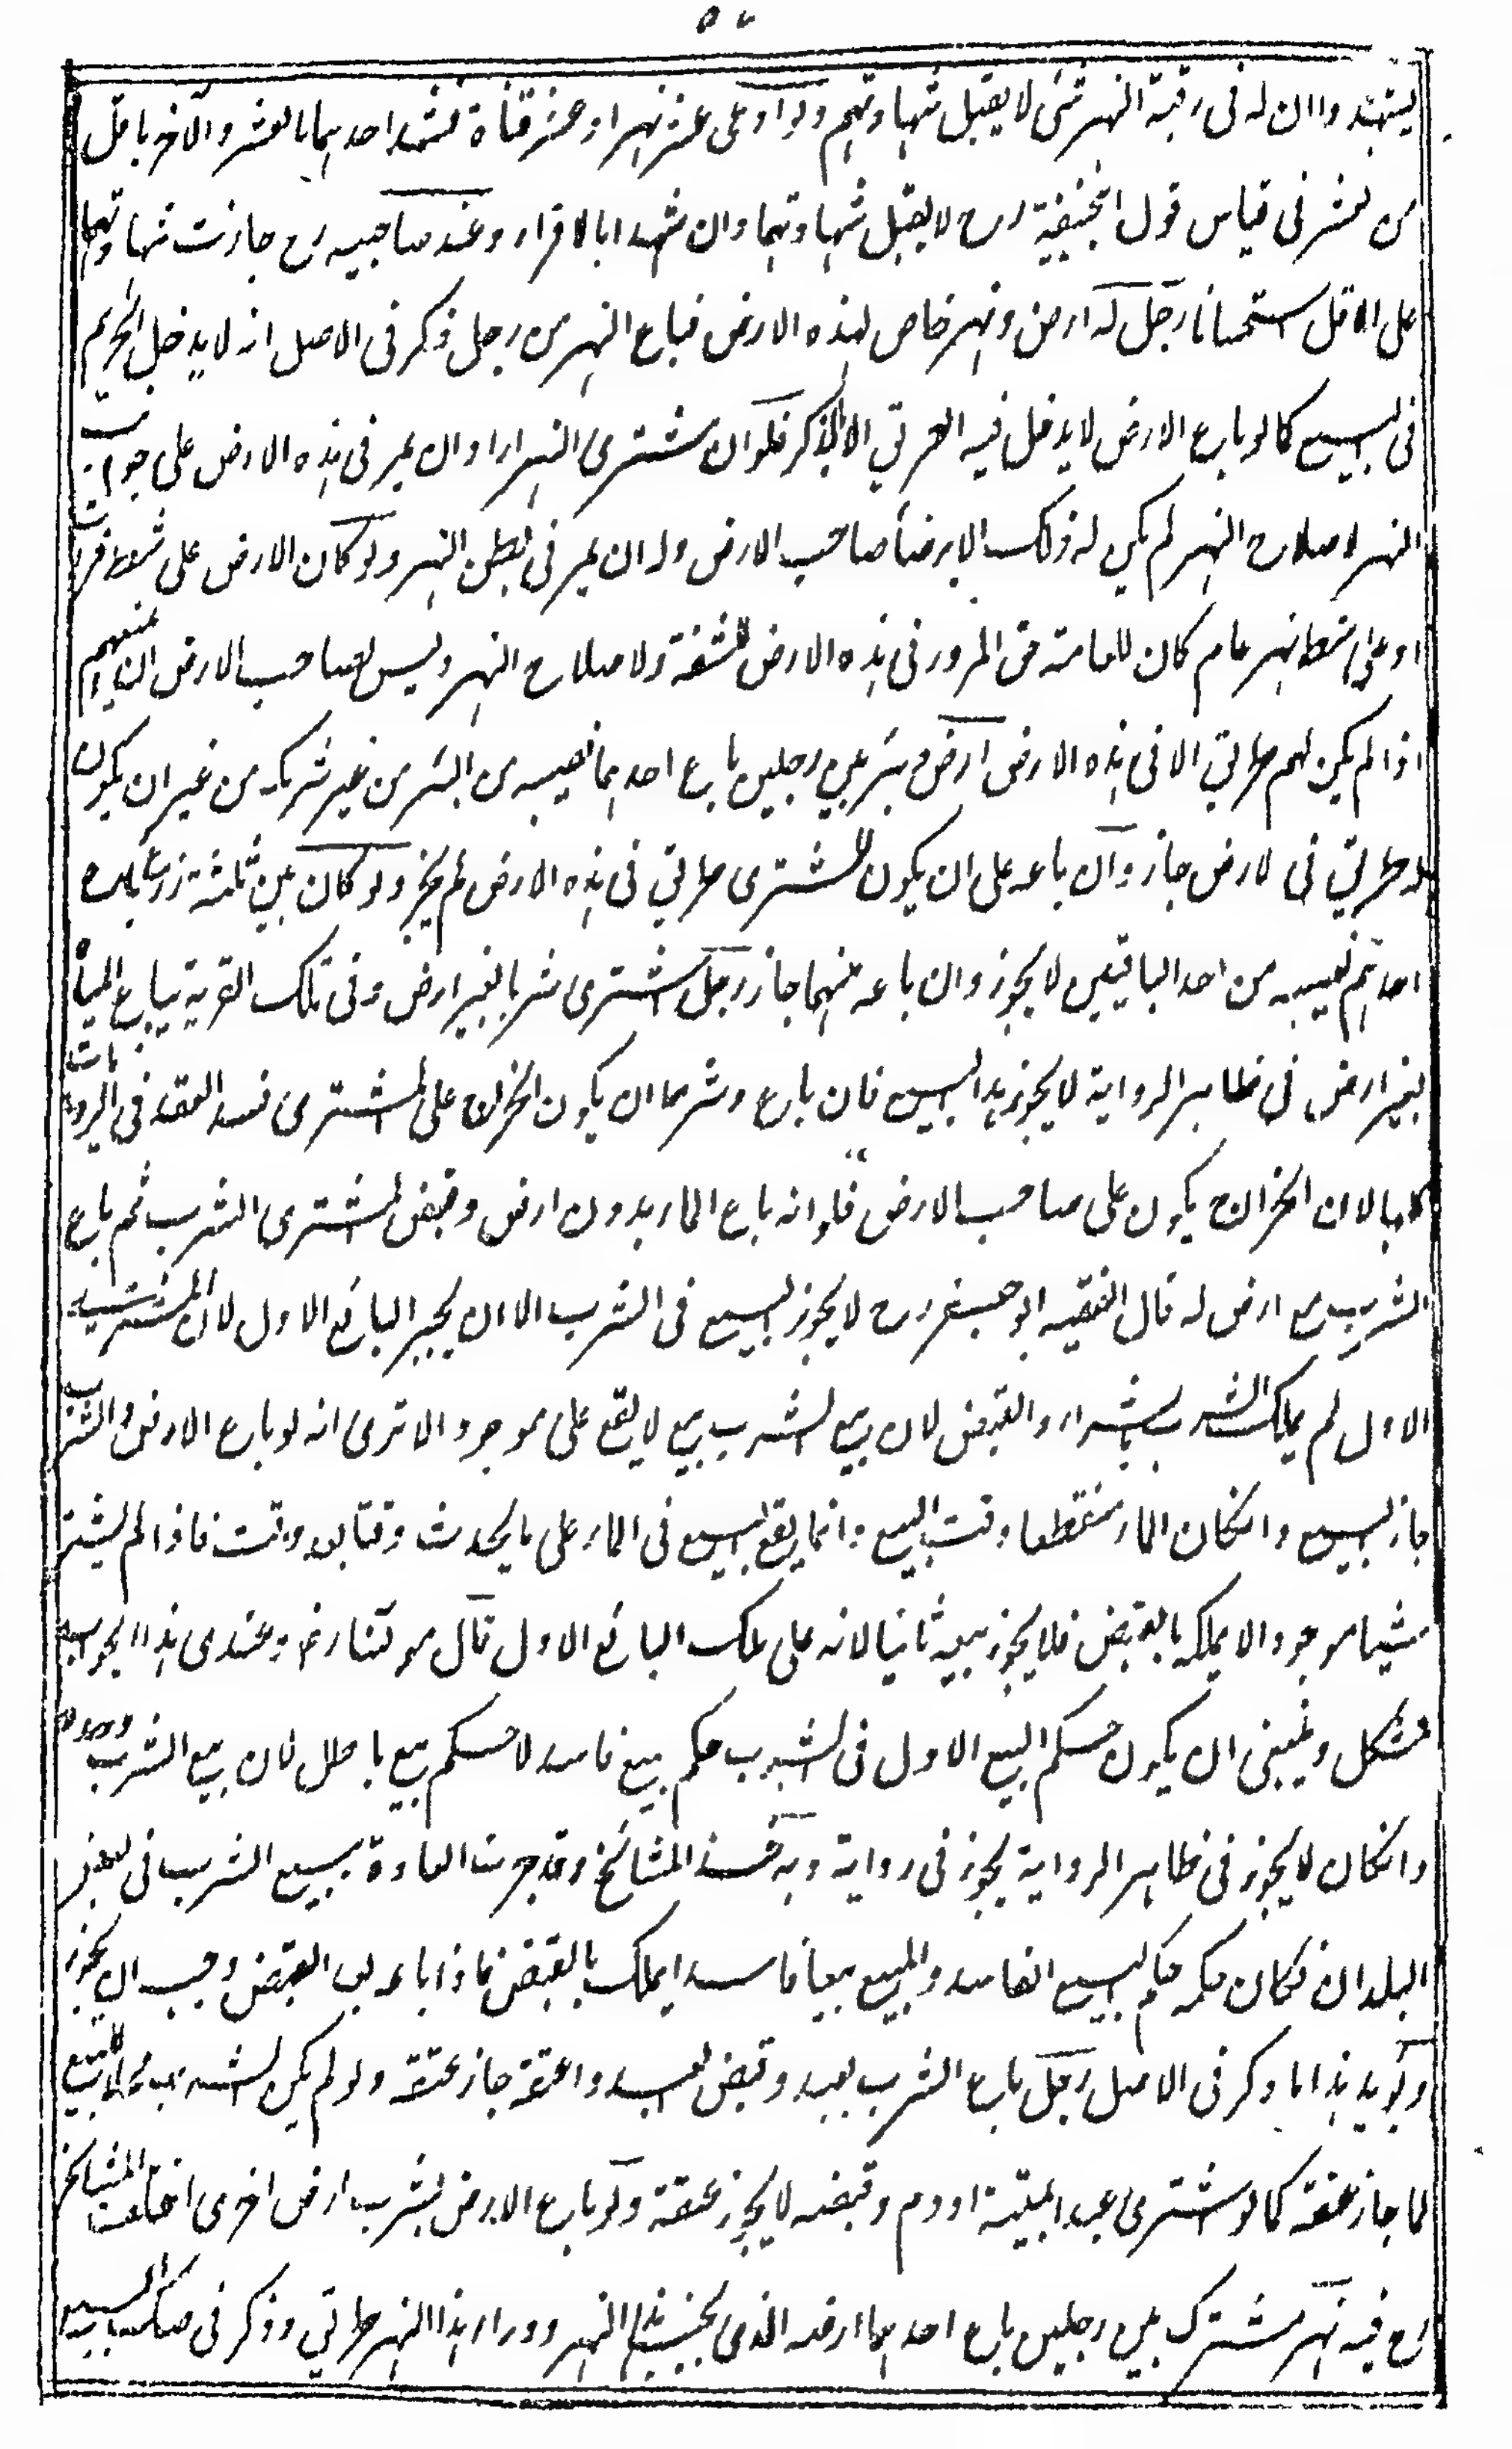 ۵۷
يشهدوا ان له فى رقبة النهر شئ لا يقبل شهادتهم ولو ادعى عشر نهر او عشر قناة فشهد احدهما بالعشر والآخر باقل
من عشر فى قياس قول ابيحنيفة رح لا يقبل شهادتهما وان شهدا بالاقرار وعند صاحبيه رح جازت شهادتهما
على الاقل استحسانا رجل له ارض ونهر خاص لهذه الارض فباع النهر من رجل ذكر فى الاصل انه لا يدخل الحريم
فى البيع كما لو باع الارض لا يدخل فيه الطريق الا بالذكر فلو ان مشترى النهر اراد ان يمر فى هذه الارض على جوانب
النهر لاصلاح النهر لم يكن له ذلك الا برضأ صاحب الارض وله ان يمر فى بطن النهر ولو كان الارض على شط فرات
او على شط نهر عام كان للعامة حق المرور فى هذه الارض للشفة ولاصلاح النهر وليس لصاحب الارض ان يمنعهم
اذا لم يكن لهم طريق الا فى هذه الارض ارض وبئر بين رجلين باع احدهما نصيبه من البئر من غير شريكه من غير ان يكون
له طريق فى الارض جاز وان باعه على ان يكون للمشترى طريق فى هذه الارض لم يجز ولو كان بين ثلثة
احدهم نصيبه من احد الباقيين لا يجوز وان باعه منهما جاز رجل اشترى شربا بغير ارض وفى تلك القرية يباع المياه
بغير ارض فى ظاهر الرواية لا يجوز هذا البيع فان باع وشرط ان يكون الخراج على المشترى فسد العقد فى الروايات
كلها لان الخراج يكون على صاحب الارض فلو انه باع الماء بدون ارض وقبض المشترى الشرب ثم باع
الشرب مع ارض له قال الفقيه ابو جعفر رح لا يجوز البيع فى الشرب الا ان يجيز البائع الاول لان المشترى
الاول لم يملك الشرب بالشراء والقبض لان بيع الشرب بيع لا يقع على موجود الا ترى انه لو باع الارض والشرب
جاز البيع وانكان الماء منقطعا وقت البيع وانما يقع البيع فى الماء على ما يحدث وقتا بعد وقت فاذا لم يشتر
شيئا موجودا لا يملكه بالقبض فلا يجوز بيعه ثانيا لانه على ملك البائع الاول قال مولنا رض وعندى هذا الجواب
مشكل وينبغى ان يكون حكم البيع الاول فى الشرب حكم بيع فاسد لا حكم بيع باطل لان بيع الشرب وحده
وانكان لا يجوز فى ظاهر الرواية يجوز فى رواية وبه اخذ المشائخ وقد جرت العادة ببيع الشرب فى بعض
البلدان فكان حكمه حكم البيع الفاسد والمبيع بيعا فاسدا يملك بالقبض فاذا باعه بعد القبض وجب ان يجوز
ويؤيد هذا ما ذكر فى الاصل رجل باع الشرب بعبد وقبض العبد واعتقه جاز عتقه ولو لم يكن الشرب محلا للبيع
لما جاز عتقه كما لو اشترى عبدا بميتة او دم وقبضه لا يجوز عتقه ولو باع الارض بشرب ارض اخرى اختلف المشائخ
رح فيه نهر مشترك بين رجلين باع احدهما ارضه الذى بجنب هذا النهر ووراء هذا النهر طريق وذكر فى صك البيع